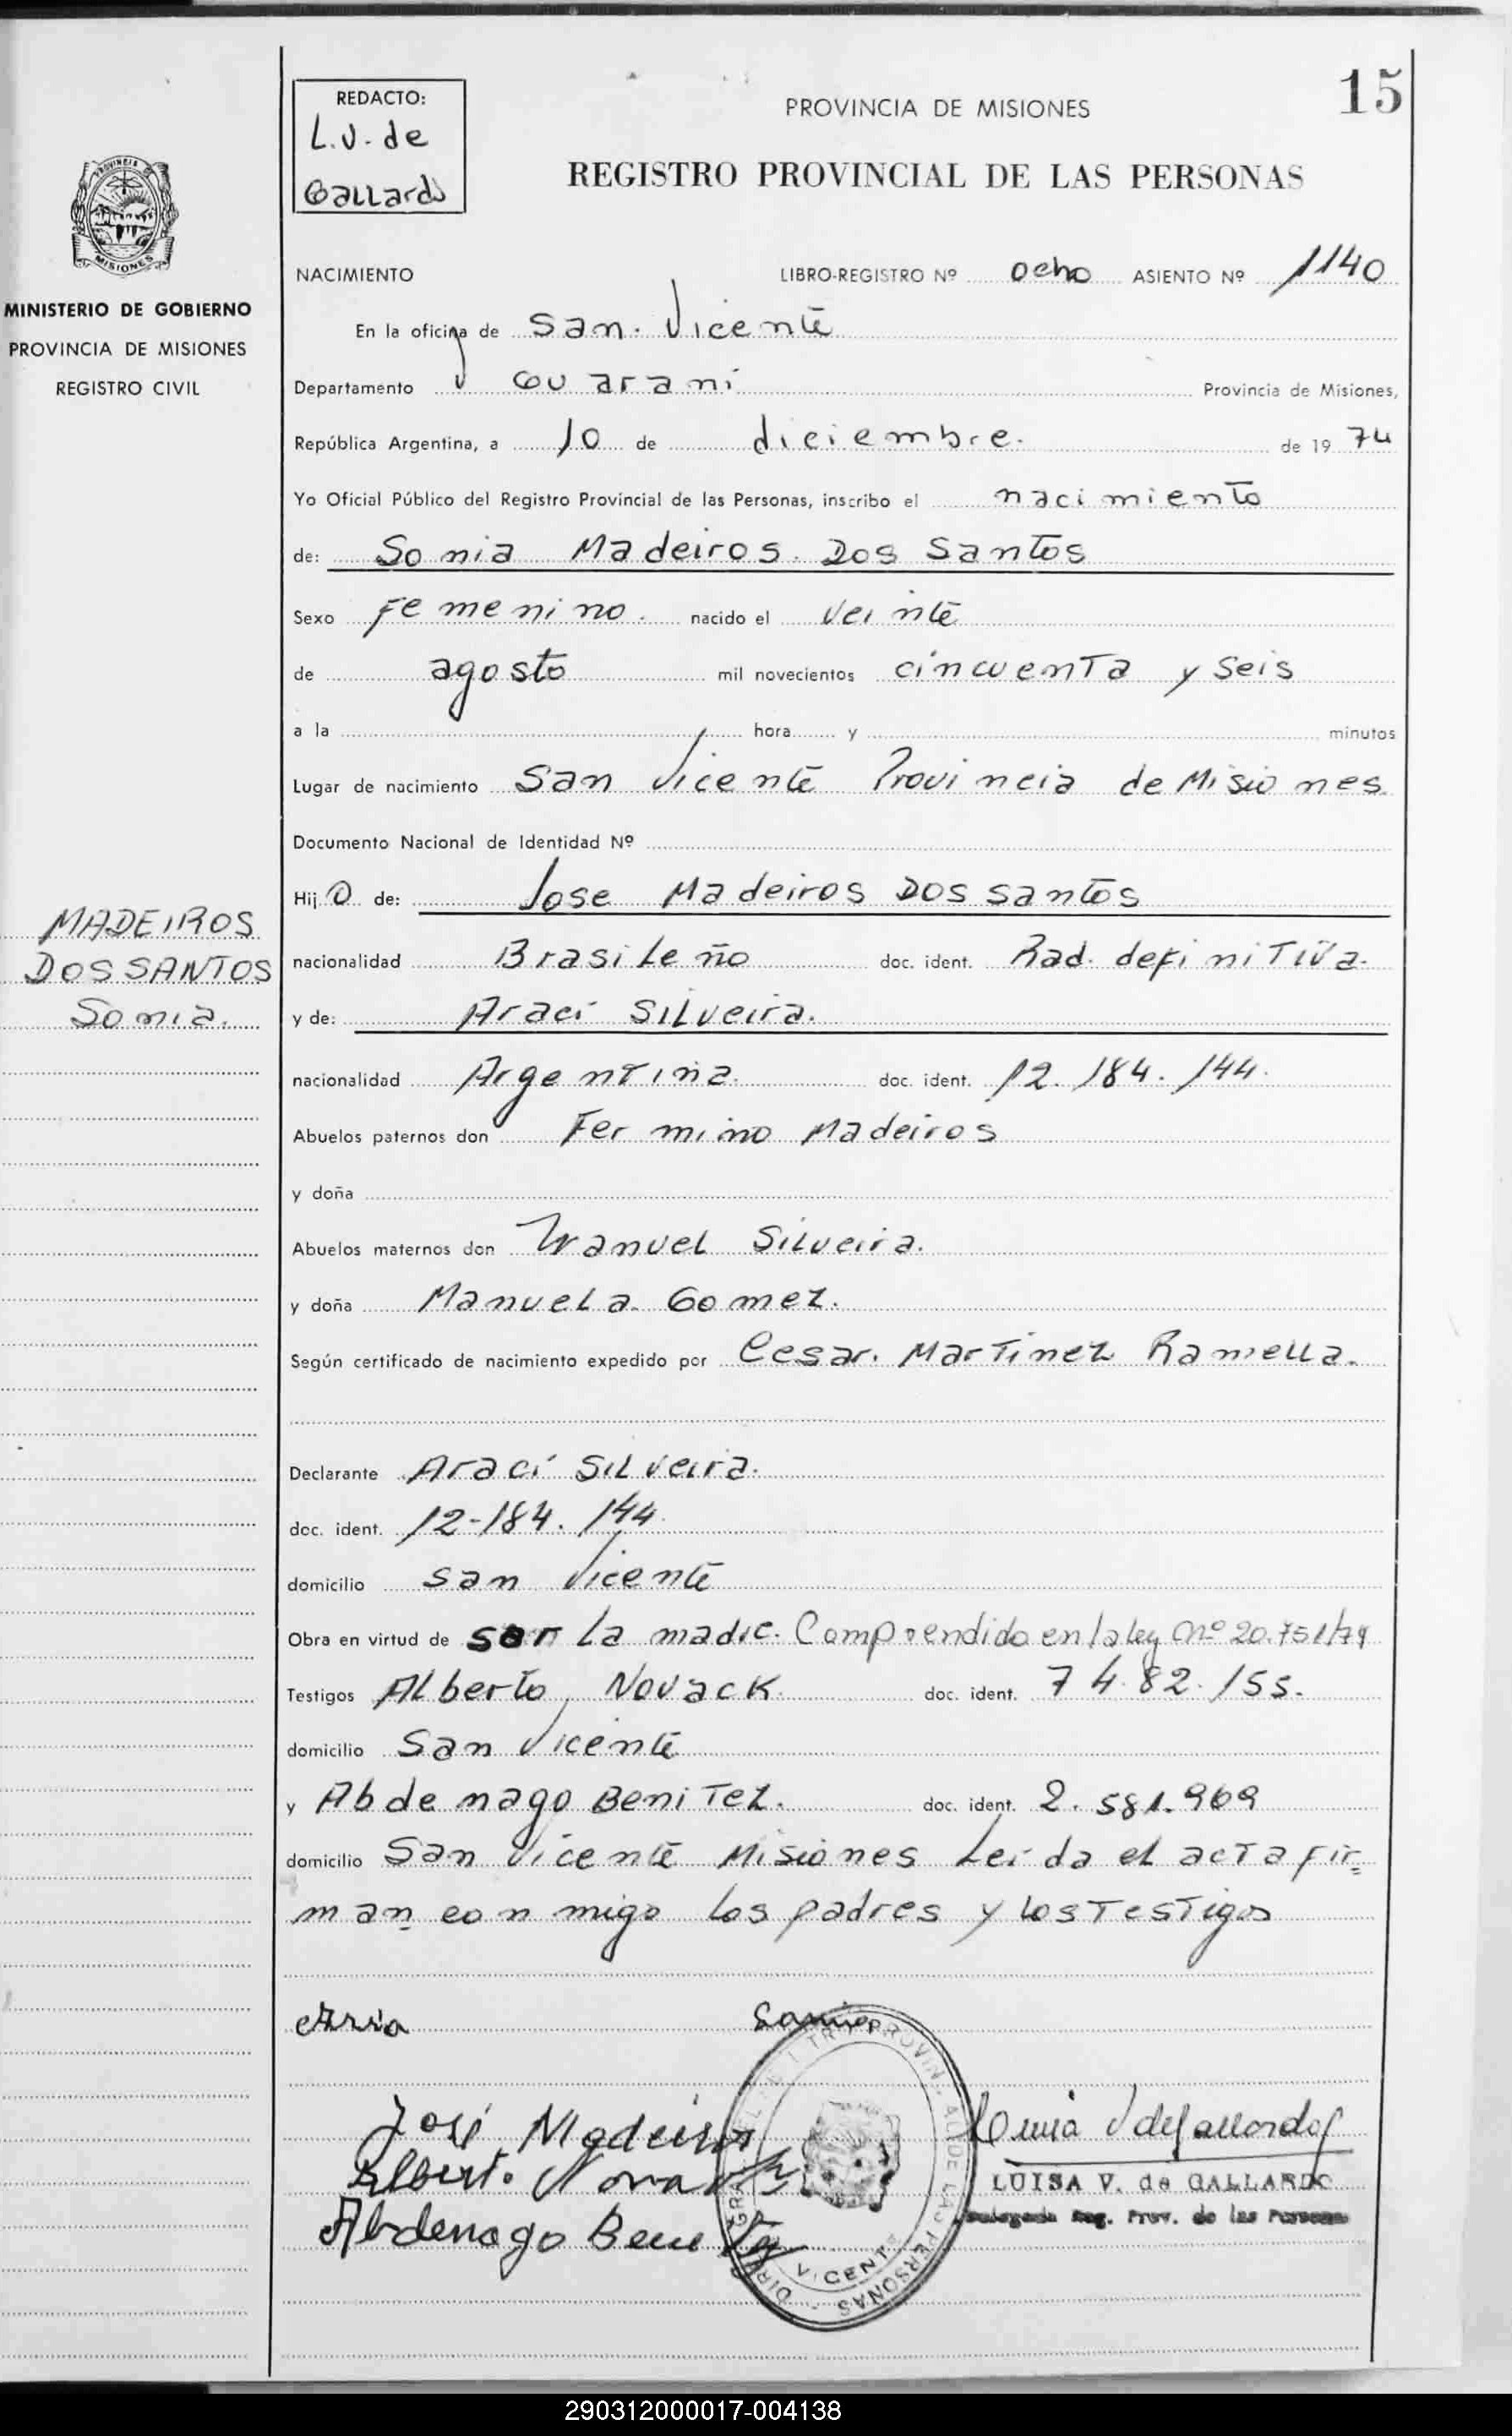 15
REDACTO:
L.V. de
Gallardo
PROVINCIA DE MISIONES
REGISTRO PROVINCIAL DE LAS PERSONAS
PROVINCIA
MISIONES
MINISTERIO DE GOBIERNO
PROVINCIA DE MISIONES
REGISTRO CIVIL
NACIMIENTO LIBRO-REGISTRO Nº ocho ASIENTO Nº 1140
En la oficina de San. Vicente
Departamento Guarani Provincia de Misiones,
República Argentina, a 10 de diciembre. de 1974
Yo Oficial Público del Registro Provincial de las Personas, inscribo el nacimiento
de: Sonia Madeiros. Dos Santos
Sexo Femenino. nacido el veinte
de agosto mil novecientos cincuenta y seis
a la hora y minutos
Lugar de nacimiento San Vicente Provincia de Misiones.
Documento Nacional de Identidad Nº
Hija de: Jose Madeiros Dos santos
MADEIROS
DOS SANTOS
Sonia.
nacionalidad Brasileño doc. ident. Rad. definitiva.
y de: Araci Silveira.
nacionalidad Argentina. doc. ident. 12.184.144.
Abuelos paternos don Fermino Madeiros
y doña
Abuelos maternos don Manuel Silveira.
y doña Manuela Gomez.
Según certificado de nacimiento expedido por Cesar. Martinez Ramella.
Declarante Araci Silveira.
doc. ident. 12-184.144.
domicilio San Vicente
Obra en virtud de ser la madre. Comprendido en la ley Nº 20.751/74
Testigos Alberto Novack doc. ident. 7482.155.
domicilio San Vicente
y Abdenago Benitez. doc. ident. 2.581.969
domicilio San Vicente Misiones Leida el acta fir=
man conmigo los padres y los testigos
José Madeiros
Alberto Novack
Abdenago Benitez
LUISA V. de GALLARDO
Delegada Reg. Prov. de las Personas
VICENTE
290312000017-004138